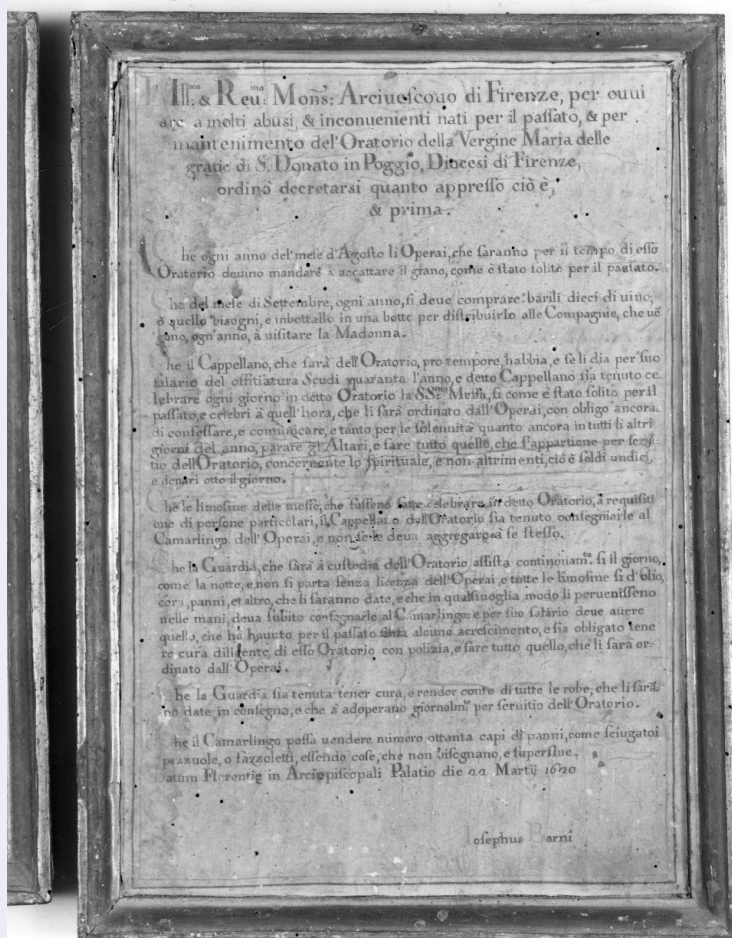 Ill:mo & Reu:mo Mons: Arciuescouo di Firenze, per ouui
are a molti abusi, & inconuenienti nati per il passato, & per
mantenimento del'Oratorio della Vergine Maria delle
gratie di S. Donato in Poggio, Diocesi di Firenze,
ordinò decretarsi quanto appresso ciò è,
& prima.
Che ogni anno del mese d'Agosto li Operai, che saranno per il tempo di esso
Oratorio deuino mandare a accattare il grano, come è stato solito per il passato.
Che del mese di Settembre, ogni anno, si deue comprare barili dieci di uino,
ò quello bisogni, e inbottallo in una botte per distribuirlo alle Compagnie, che ue
gano, ogn'anno, à uisitare la Madonna.
Che il Cappellano, che sarà dell'Oratorio, pro tempore, habbia, e se li dia per suo
salario del offitiatura Scudi quaranta l'anno, e detto Cappellano sia tenuto ce
lebrare ogni giorno in detto Oratorio la SS:ma Messa, si come è stato solito per il
passato, e celebri à quell'hora, che li sarà ordinato dall'Operai, con obligo ancora
di confessare, e comunicare, e tanto per le solennità quanto ancora in tutti li altri
giorni del anno, parare gl'Altari, e fare tutto quello, che s'appartiene per serui
tio dell'Oratorio, concernente lo spirituale, e non altrimenti, ciò è soldi undici,
e denari otto il giorno.
Che le limosine delle messe, che fusseno fatte celebrare in detto Oratorio, à requisiti
one di persone particolari, il Cappellano dell'Oratorio sia tenuto consegniarle al
Camarlingo dell'Operai, e non se le deua aggregare à se stesso.
Che la Guardia, che sarà à custodia dell'Oratorio assista continouam:te si il giorno,
come la notte, e non si parta senza licenza dell'Operai, e tutte le limosine si d'olio,
cera, panni, et altro, che li saranno date, e che in qualsiuoglia modo li peruenisseno
nelle mani, deua subito consegnarle al Camarlingo: e per suo salario deue auere
quello, che hà hauuto per il passato senza alcuno acrescimento, e sia obligato tene
re cura diligente di esso Oratorio con polizia, e fare tutto quello, che li sarà or-
dinato dall'Operai.
Che la Guardia sia tenuta tener cura, e render conto di tutte le robe, che li sarà
no date in consegna, e che s'adoperano giornalm:te per seruitio dell'Oratorio.
Che il Camarlingo possa uendere numero ottanta capi di panni, come sciugatoi
pezzuole, o fazzoletti, essendo cose, che non bisognano, e superflue.
Datum Florentię in Arciepiscopali Palatio die 22 Martij 1620
Iosephus Barni